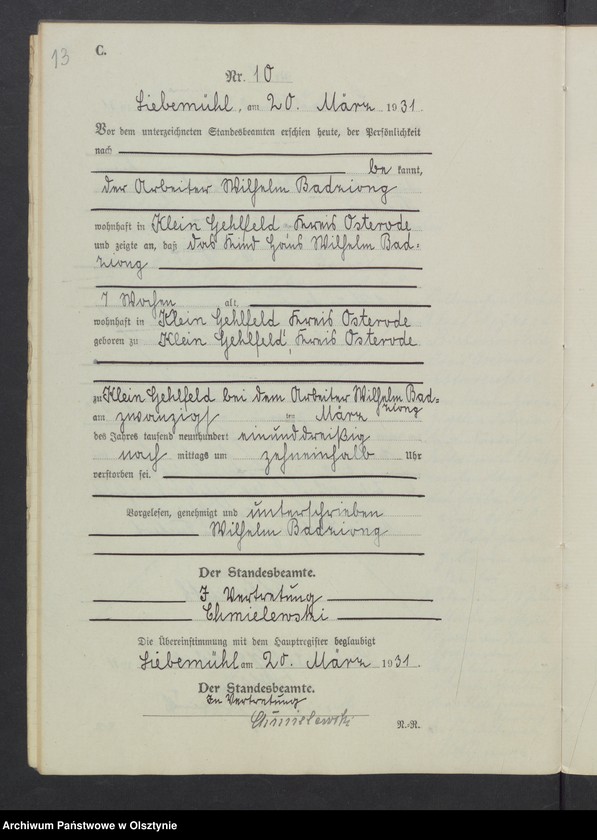 13
C.
Nr. 10
Liebemühl, am 20. März 1931.
Vor dem unterzeichneten Standesbeamten erschien heute, der Persönlichkeit
nach
be kannt,
der Arbeiter Wilhelm Badziong
wohnhaft in Klein Gehlfeld Kreis Osterode
und zeigte an, daß das Kind Hans Wilhelm Bad=
ziong
7 Wochen alt,
wohnhaft in Klein Gehlfeld Kreis Osterode
geboren zu Klein Gehlfeld, Kreis Osterode
zu Klein Gehlfeld bei dem Arbeiter Wilhelm Bad=
ziong
am zwanzigst den März
des Jahres tausend neunhundert einunddreißig
nach mittags um zehneinhalb Uhr
verstorben sei.
Vorgelesen, genehmigt und unterschrieben
Wilhelm Badziong
Der Standesbeamte.
I Vertretung
Chmielewski
Die Übereinstimmung mit dem Hauptregister beglaubigt
Liebemühl am 20. März 1931.
Der Standesbeamte.
In Vertretung
Chmielewski
N.-R.
Archiwum Państwowe w Olsztynie